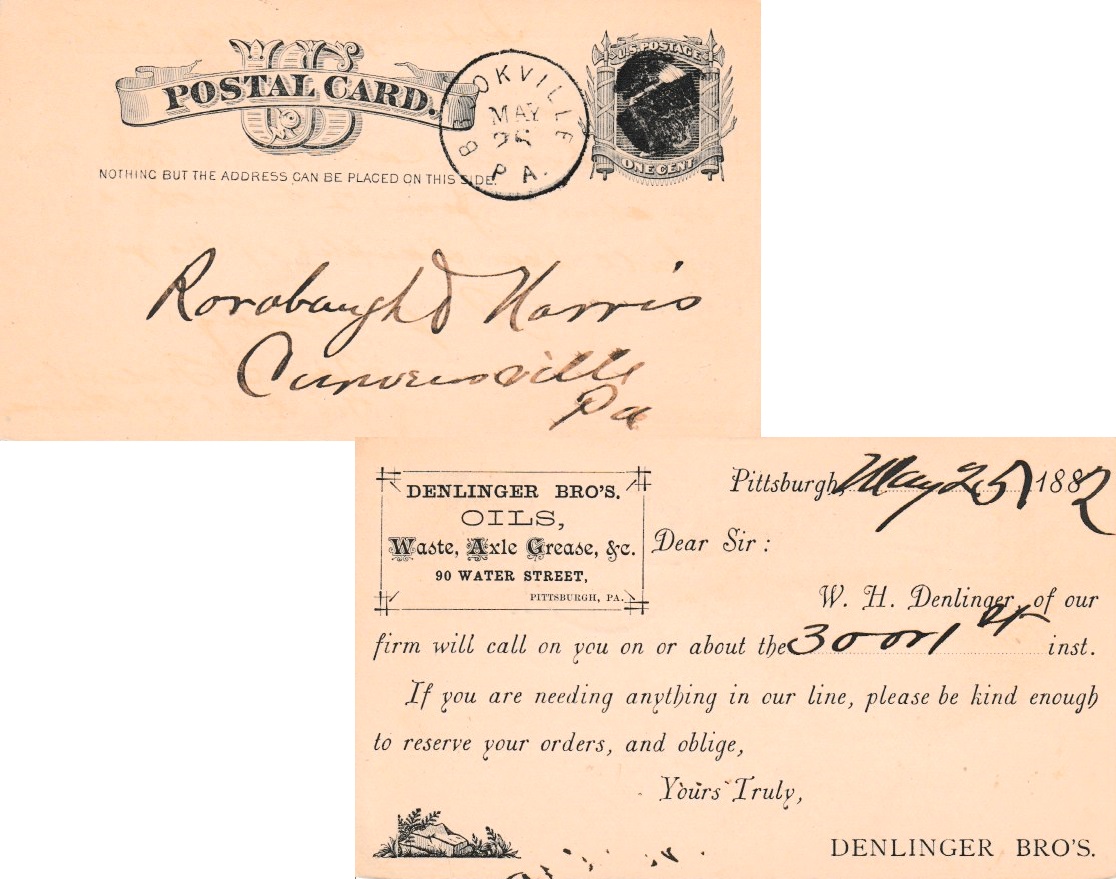 US
POSTAL CARD.
NOTHING BUT THE ADDRESS CAN BE PLACED ON THIS SIDE.
BROOKVILLE
MAY
25
PA.
U.S. POSTAGE
ONE CENT
Rorabaugh & Harris
Curwensville
Pa
DENLINGER BRO'S.
OILS,
Waste, Axle Grease, &c.
90 WATER STREET,
PITTSBURGH, PA.
Pittsburgh, May 25 1882
Dear Sir:
W. H. Denlinger, of our
firm will call on you on or about the 30 or 1st inst.
If you are needing anything in our line, please be kind enough
to reserve your orders, and oblige,
Yours Truly,
DENLINGER BRO'S.